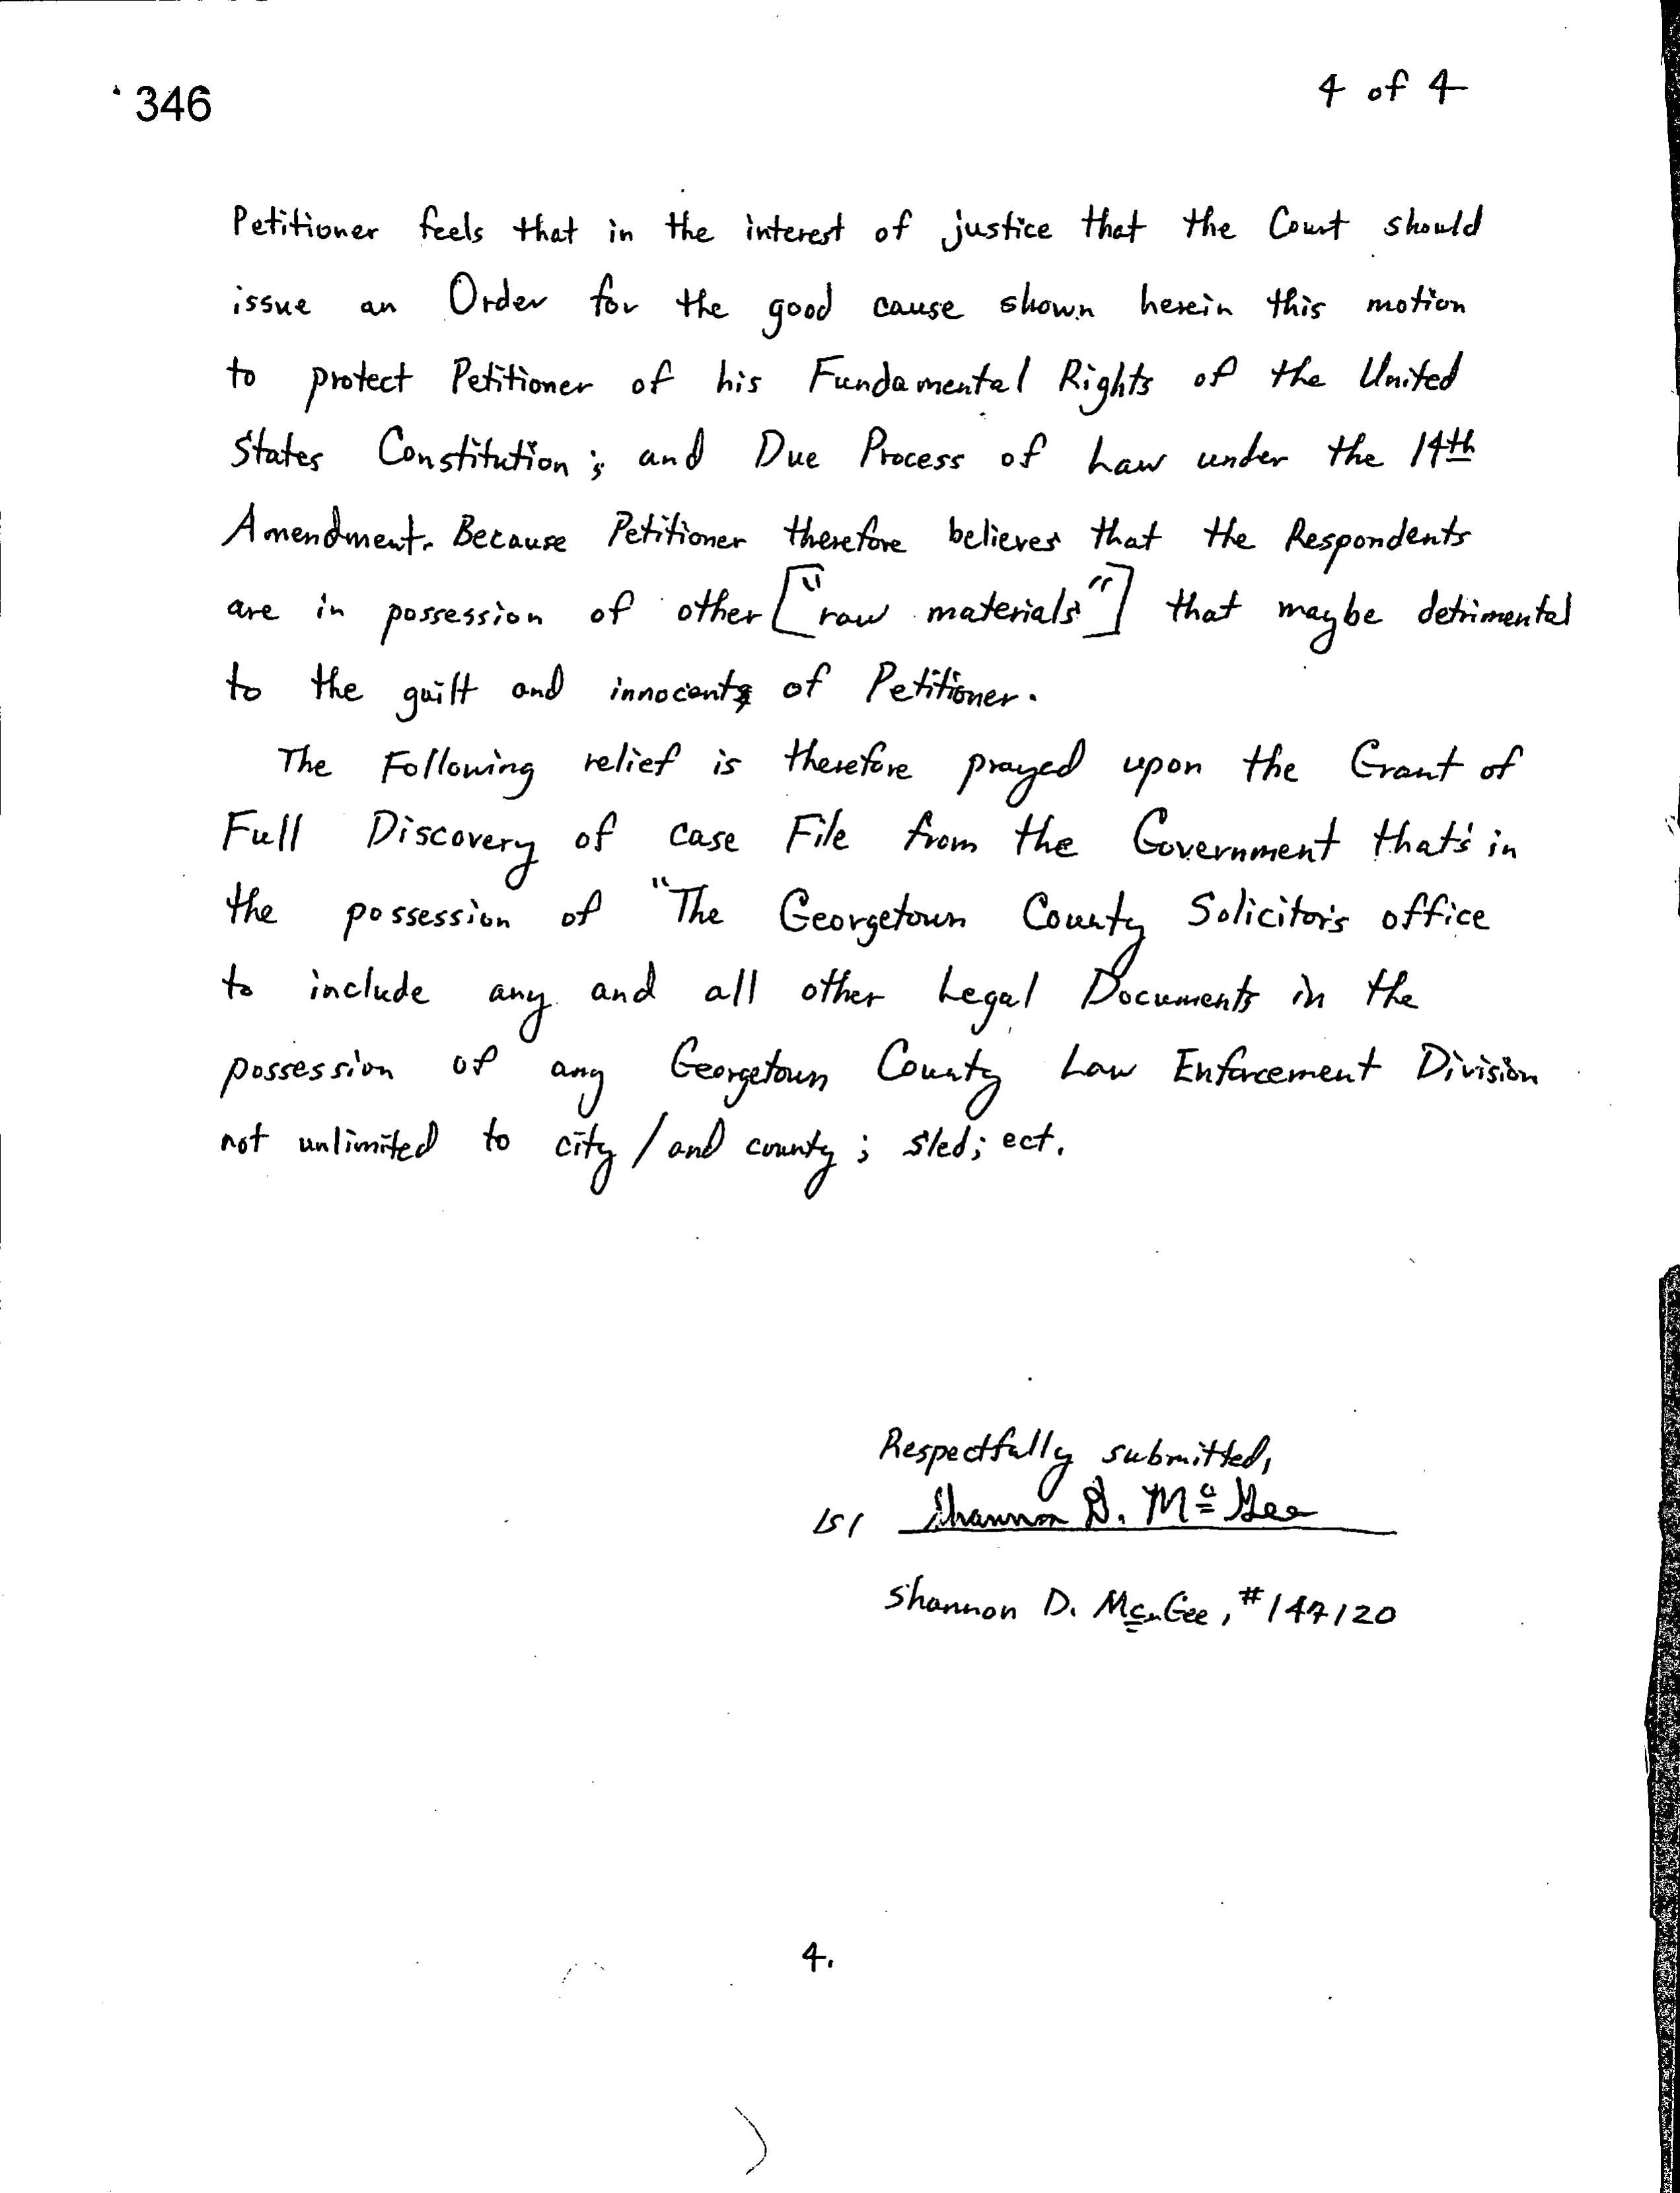 346
4 of 4
Petitioner feels that in the interest of justice that the Court should
issue an Order for the good cause shown herein this motion
to protect Petitioner of his Fundamental Rights of the United
States Constitution; and Due Process of Law under the 14th
Amendment. Because Petitioner therefore believes that the Respondents
are in possession of other ["raw materials"] that maybe detrimental
to the guilt and innocents of Petitioner.
The Following relief is therefore prayed upon the Grant of
Full Discovery of case File from the Government that's in
the possession of "The Georgetown County Solicitor's office
to include any and all other Legal Documents in the
possession of any Georgetown County Law Enforcement Division
not unlimited to city/and county; sled; ect.
Respectfully submitted,
/s/ Shannon D. McGee
Shannon D. McGee, #147120
4.